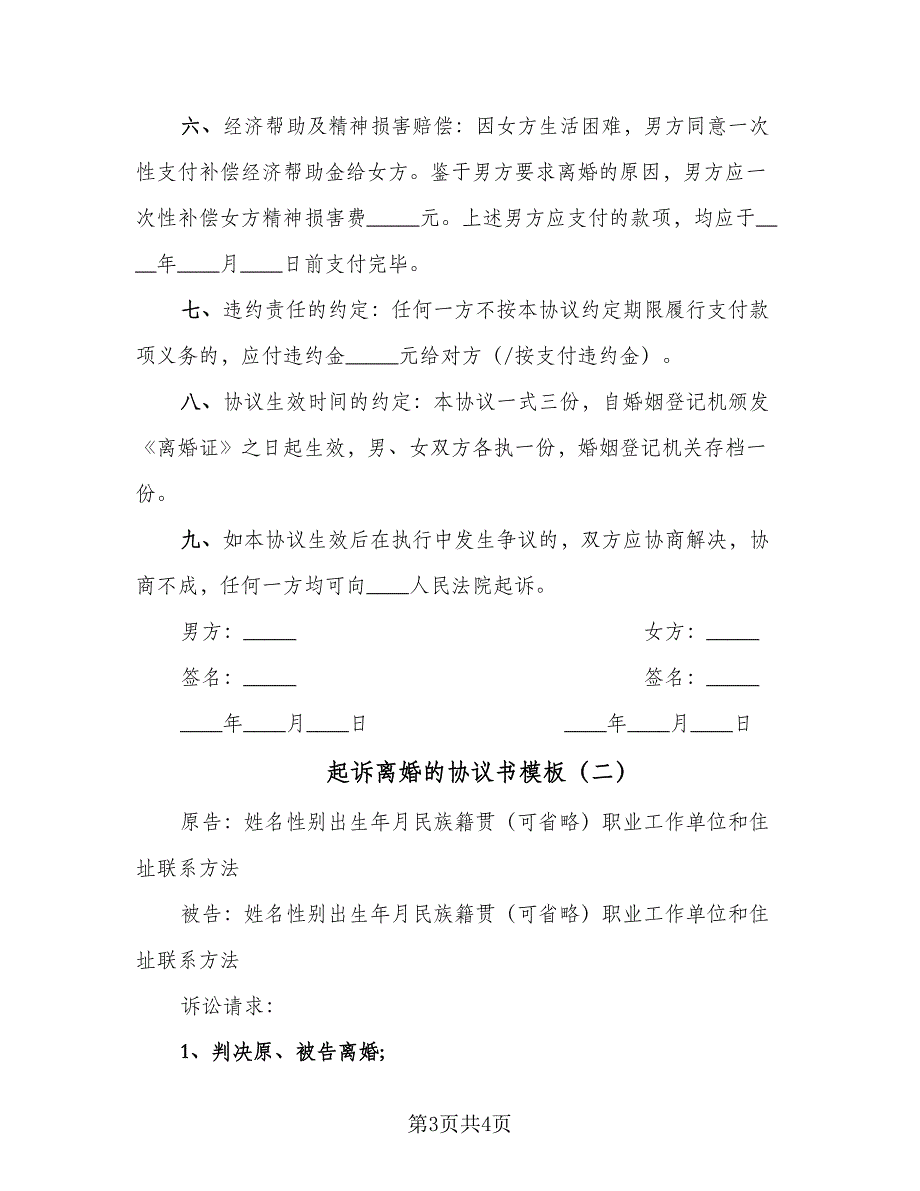 六、经济帮助及精神损害赔偿：因女方生活困难，男方同意一次
性支付补偿经济帮助金给女方。鉴于男方要求离婚的原因，男方应一
次性补偿女方精神损害费_____元。上述男方应支付的款项，均应于__
__年____月____日前支付完毕。
七、违约责任的约定：任何一方不按本协议约定期限履行支付款
项义务的，应付违约金_____元给对方（/按支付违约金）。
八、协议生效时间的约定：本协议一式三份，自婚姻登记机颁发
《离婚证》之日起生效，男、女双方各执一份，婚姻登记机关存档一
份。
九、如本协议生效后在执行中发生争议的，双方应协商解决，协
商不成，任何一方均可向____人民法院起诉。
男方：_____ 女方：_____
签名：_____ 签名：_____
____年____月____日 ____年____月____日
起诉离婚的协议书模板（二）
原告：姓名性别出生年月民族籍贯（可省略）职业工作单位和住
址联系方法
被告：姓名性别出生年月民族籍贯（可省略）职业工作单位和住
址联系方法
诉讼请求：
1、判决原、被告离婚;
第3页共4页